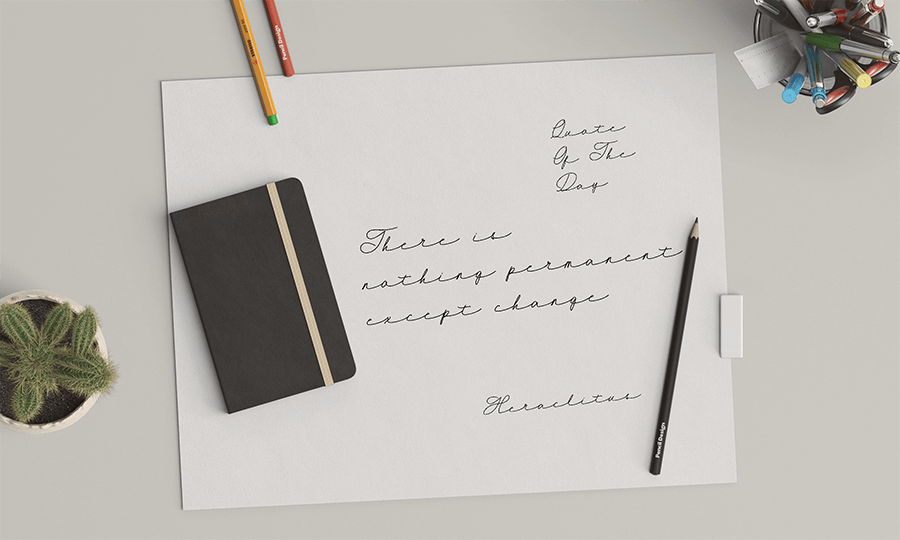 Quote
Of The
Day
There is
nothing permanent
except change
Heraclitus
Pencil Design
Pencil Design